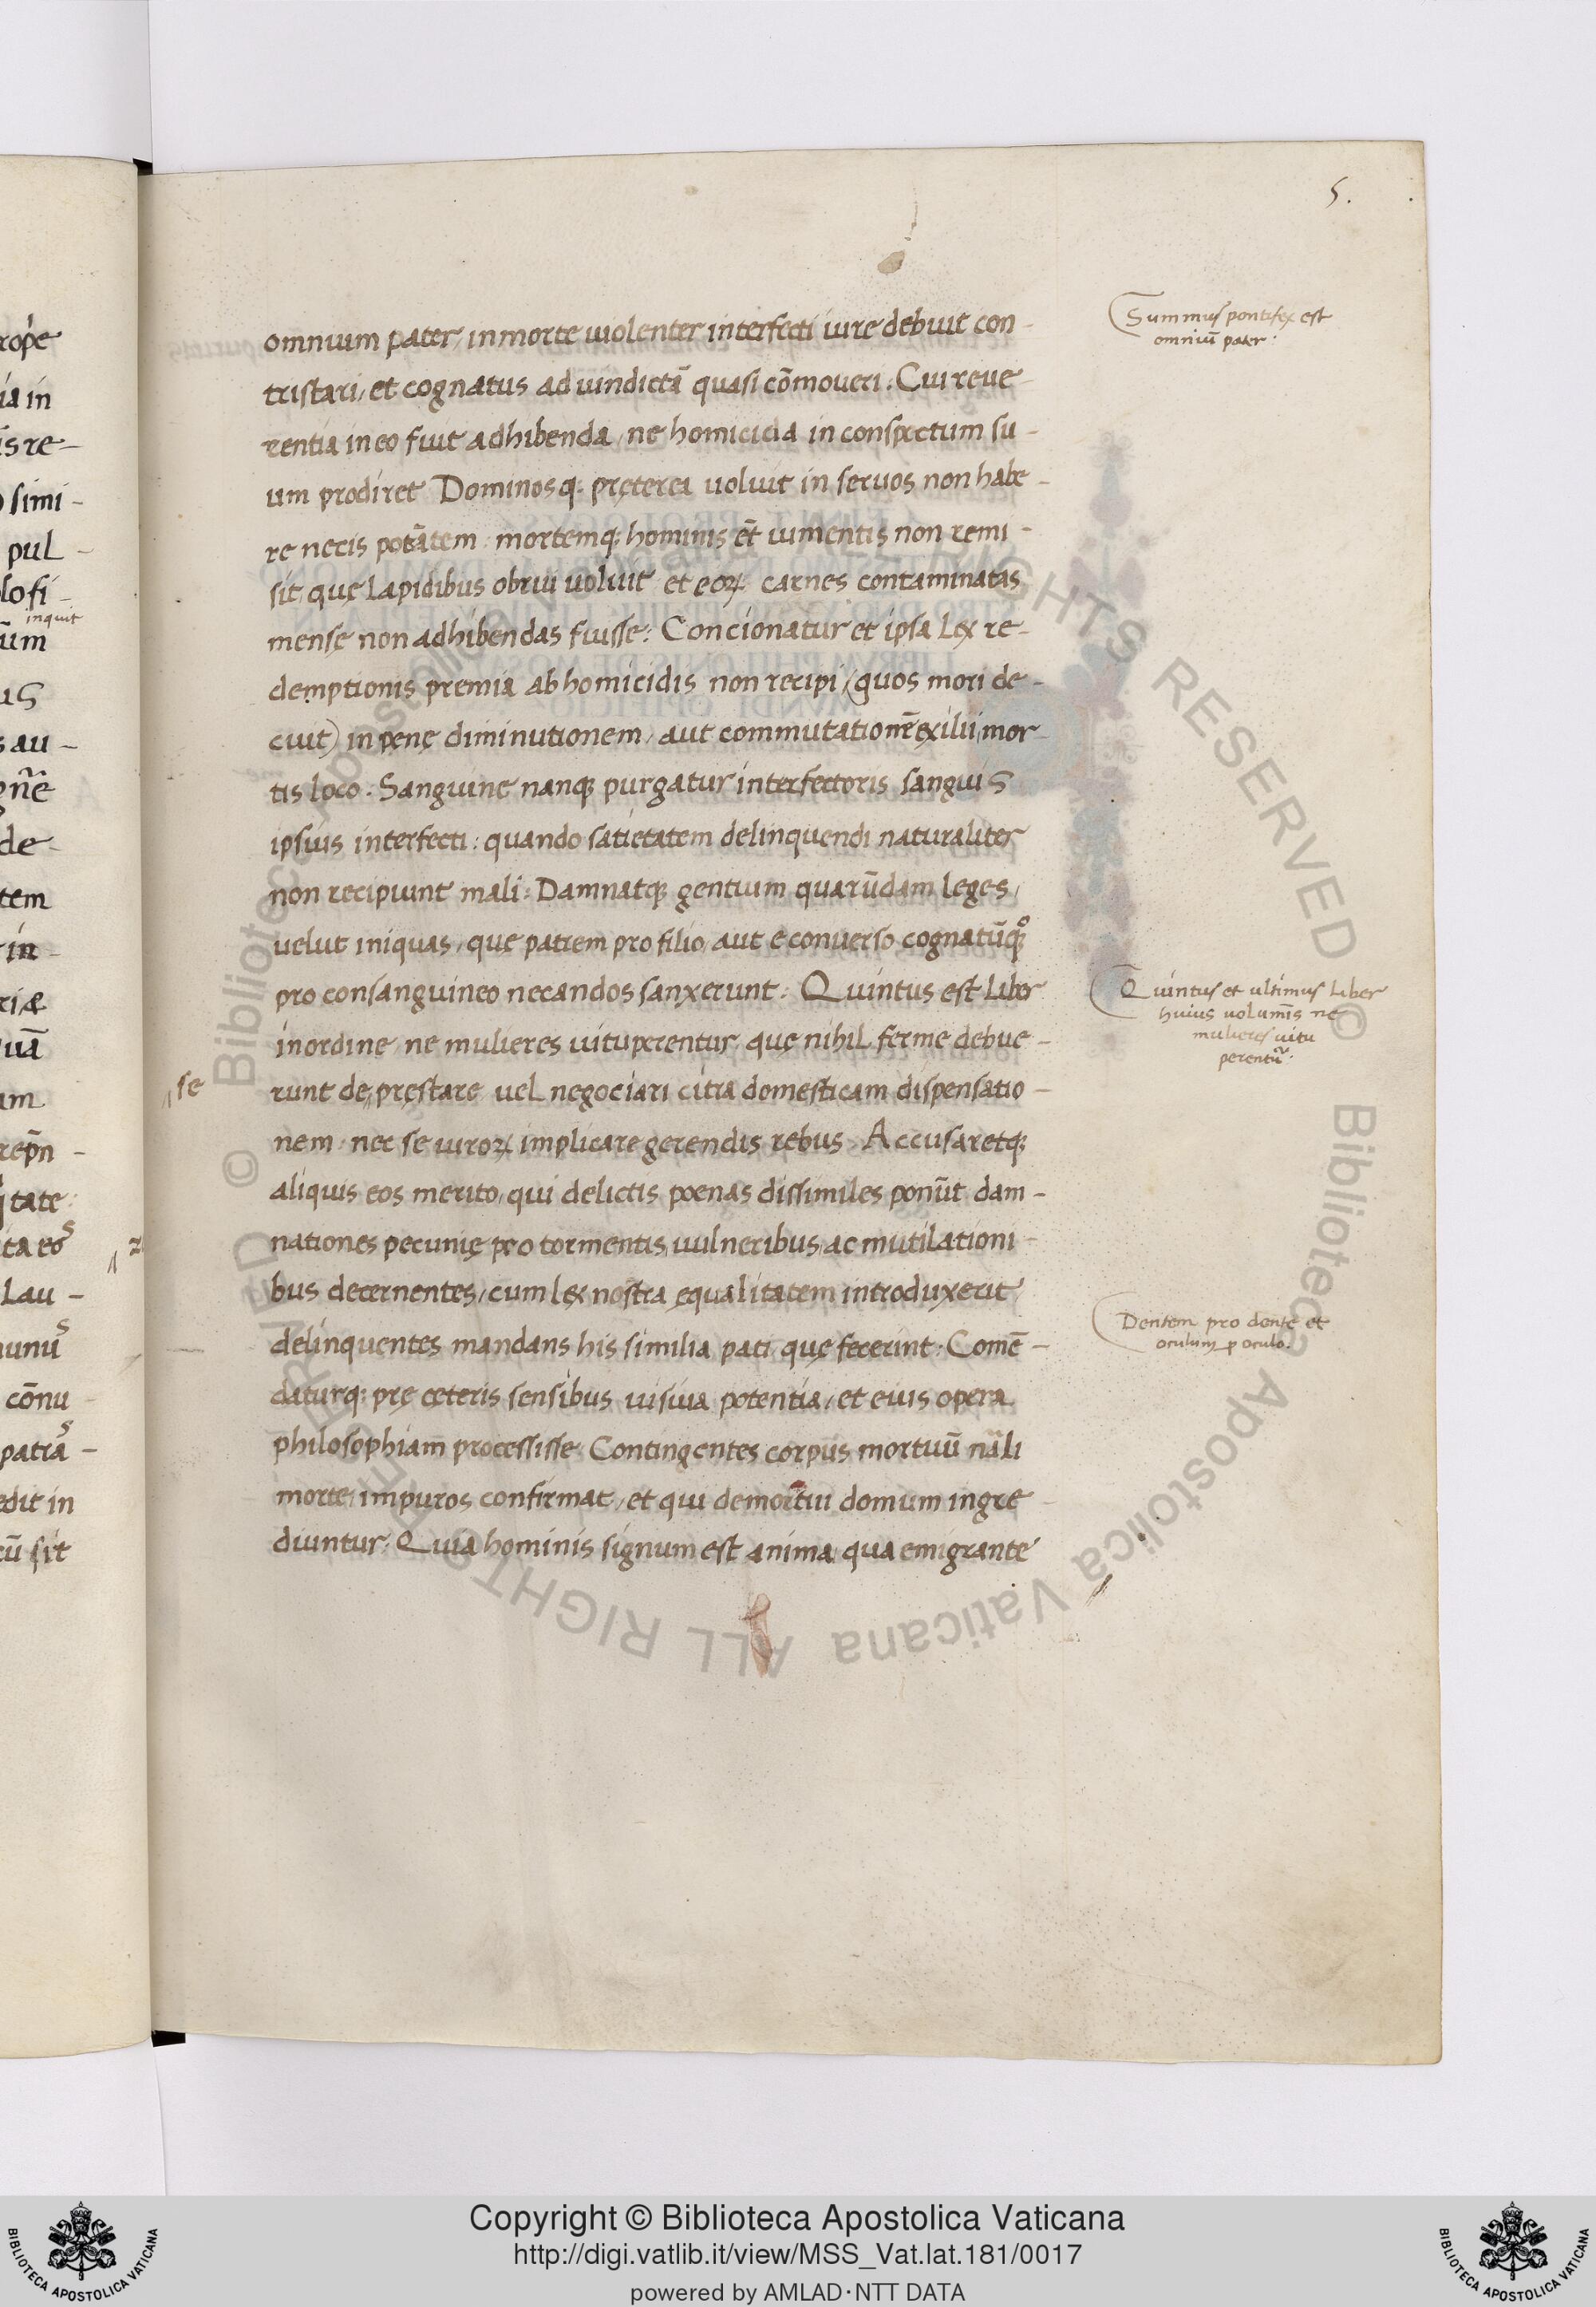 5.
omnium pater, in morte uiolenter interfecti iure debuit con-
tristari, et cognatus ad uindictā quasi cōmoueri. Cui reue-
rentia in eo fuit adhibenda, ne homicida in conspectum su-
um prodiret Dominosq; pręterea uoluit in seruos non habe-
re necis potātem: mortemq; hominis et̄ iumentis non remi-
sit, quę lapidibus obrui uoluit et eoꝝ carnes contaminatas
mensę non adhibendas fuisse: Concionatur et ipsa lex re-
demptionis premia ab homicidis non recipi, (quos mori de-
cuit) in penę diminutionem, aut commutationē exilii, mor-
tis loco. Sanguine nanq; purgatur interfectoris sanguis
ipsius interfecti: quando satietatem delinquendi naturaliter
non recipiunt mali: Damnatq; gentium quarūdam leges,
uelut iniquas, quę patrem pro filio, aut e conuerso cognatūq;
pro consanguineo necandos sanxerunt: Quintus est liber
in ordine, ne mulieres uituperentur, quę nihil ferme debue-
se
runt de pręstare uel negociari citra domesticam dispensatio-
nem: nec se uiroꝝ implicare gerendis rebus. Accusaretq;
aliquis eos merito, qui delictis poenas dissimiles ponūt dam-
nationes pecunię pro tormentis, uulneribus, ac mutilationi-
bus decernentes, cum lex nostra ęqualitatem introduxerit
delinquentes mandans his similia pati, quę fecerint: Comē-
daturq; prę ceteris sensibus uisiua potentia, et eius opera
philosophiam processisse. Contingentes corpus mortuū nāli
morte, impuros confirmat, et qui demortui domum ingre-
diuntur. Quia hominis signum est anima, qua emigrante
Summus pontifex est
omniū pater:
Quintus et ultimus liber
huius uolumīs ne
mulieres uitu
perentū:
Dentem pro dente et
oculum ꝑ oculo.
rope
ia in
is re-
simi-
pul-
losi-
inquit
ūm
us
au-
gnē
de-
tem
in-
riæ
uā
am
repn̄-
tate:
ta eos
Lau-
unus
cōnu-
patrās-
edit in
cū sit
© Biblioteca Apostolica Vaticana ALL RIGHTS RESERVED
© Biblioteca Apostolica Vaticana ALL RIGHTS RESERVED
Copyright © Biblioteca Apostolica Vaticana
http://digi.vatlib.it/view/MSS_Vat.lat.181/0017
powered by AMLAD·NTT DATA
BIBLIOTECA APOSTOLICA VATICANA
BIBLIOTECA APOSTOLICA VATICANA